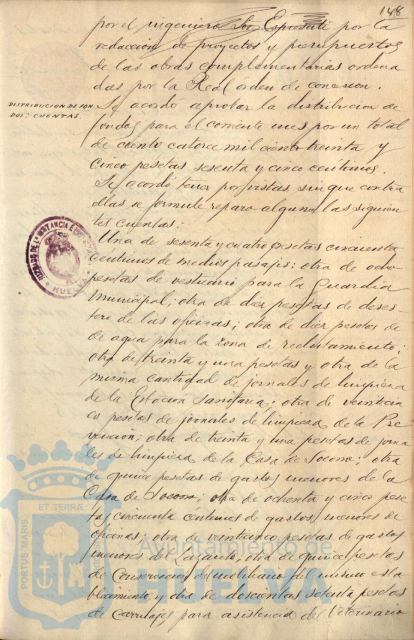 148
por el ingeniero Sr. Esposito por la
redacción de proyectos y presupuestos
de las obras complementarias ordena
das por la Real orden de concesion.
DISTRIBUCION DE FON
DOS: CUENTAS.
Se acordó aprobar la distribucion de
fondos para el corriente mes por un total
de ciento catorce mil ciento treinta y
cinco pesetas sesenta y cinco centimos.
Se acordó tener por vistas sin que contra
ellas se formule reparo alguno las siguien
tes cuentas:
Una de sesenta y cuatro pesetas cincuenta
centimos de medios pasajes; otra de ocho
pesetas de vestuario para la Guardia
Municipal; otra de diez pesetas de deses-
tero de las oficinas; otra de diez pesetas de
de agua para la zona de reclutamiento;
otra de treinta y una pesetas y otra de la
misma cantidad de jornales de limpieza
de la Estacion Sanitaria; otra de veintici
co pesetas de jornales de limpieza de la Pre
vencion; otra de treinta y una pesetas de jorna
les de limpieza de la Casa de Socorro; otra
de quince pesetas de gastos menores de la
Casa de Socorro; otra de ochenta y cinco pese
tas cincuenta centimos de gastos menores de
oficinas; otra de veinticinco pesetas de gastos
menores de otra de quince pesetas
de Conservacion del mobiliario del mismo esta
blecimiento, y otra de doscientas setenta pesetas
de carruajes para asistencia del Veterinario
JUZGADO DE 1ª INSTANCIA E
HUELVA
PORTUS MARIS
ET TERRÆ
Ayuntamiento de
HUELVA